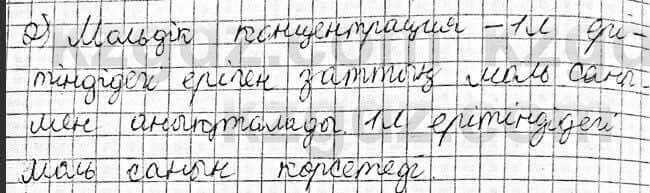 ә) Мольдік концентрация – 1л ері-
тіндідегі еріген заттың моль саны-
мен анықталады. 1л ерітіндідегі
моль санын көрсетеді.